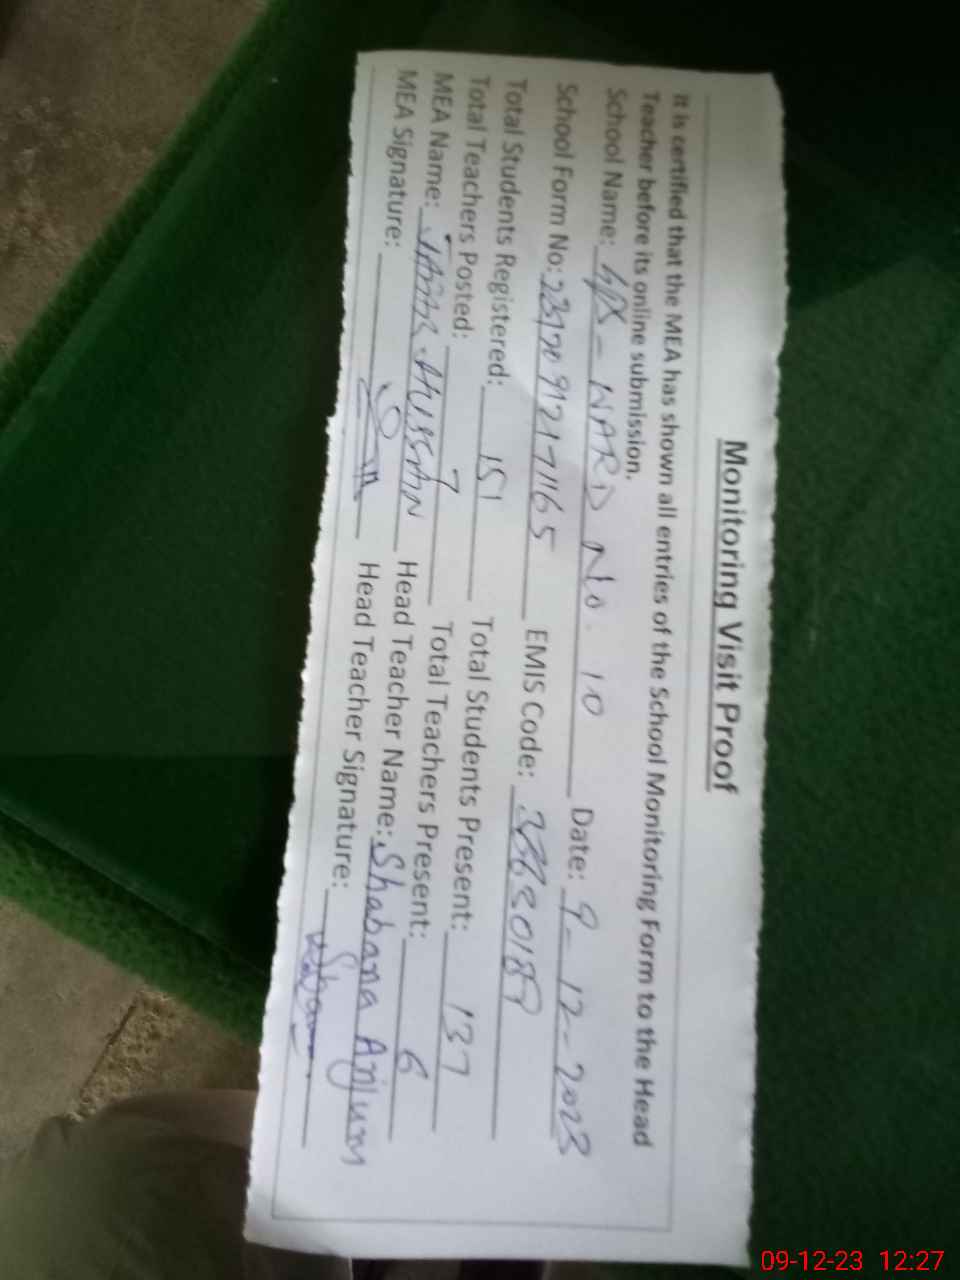 Monitoring Visit Proof
It is certified that the MEA has shown all entries of the School Monitoring Form to the Head
Teacher before its online submission.
School Name: GPS - WARD No. 10 Date: 9-12-2023
School Form No: EMIS Code:
Total Students Registered: 151 Total Students Present: 137
Total Teachers Posted: 7 Total Teachers Present: 6
MEA Name: HUSSAIN Head Teacher Name: Shabana Anjum
MEA Signature: Head Teacher Signature:
09-12-23 12:27